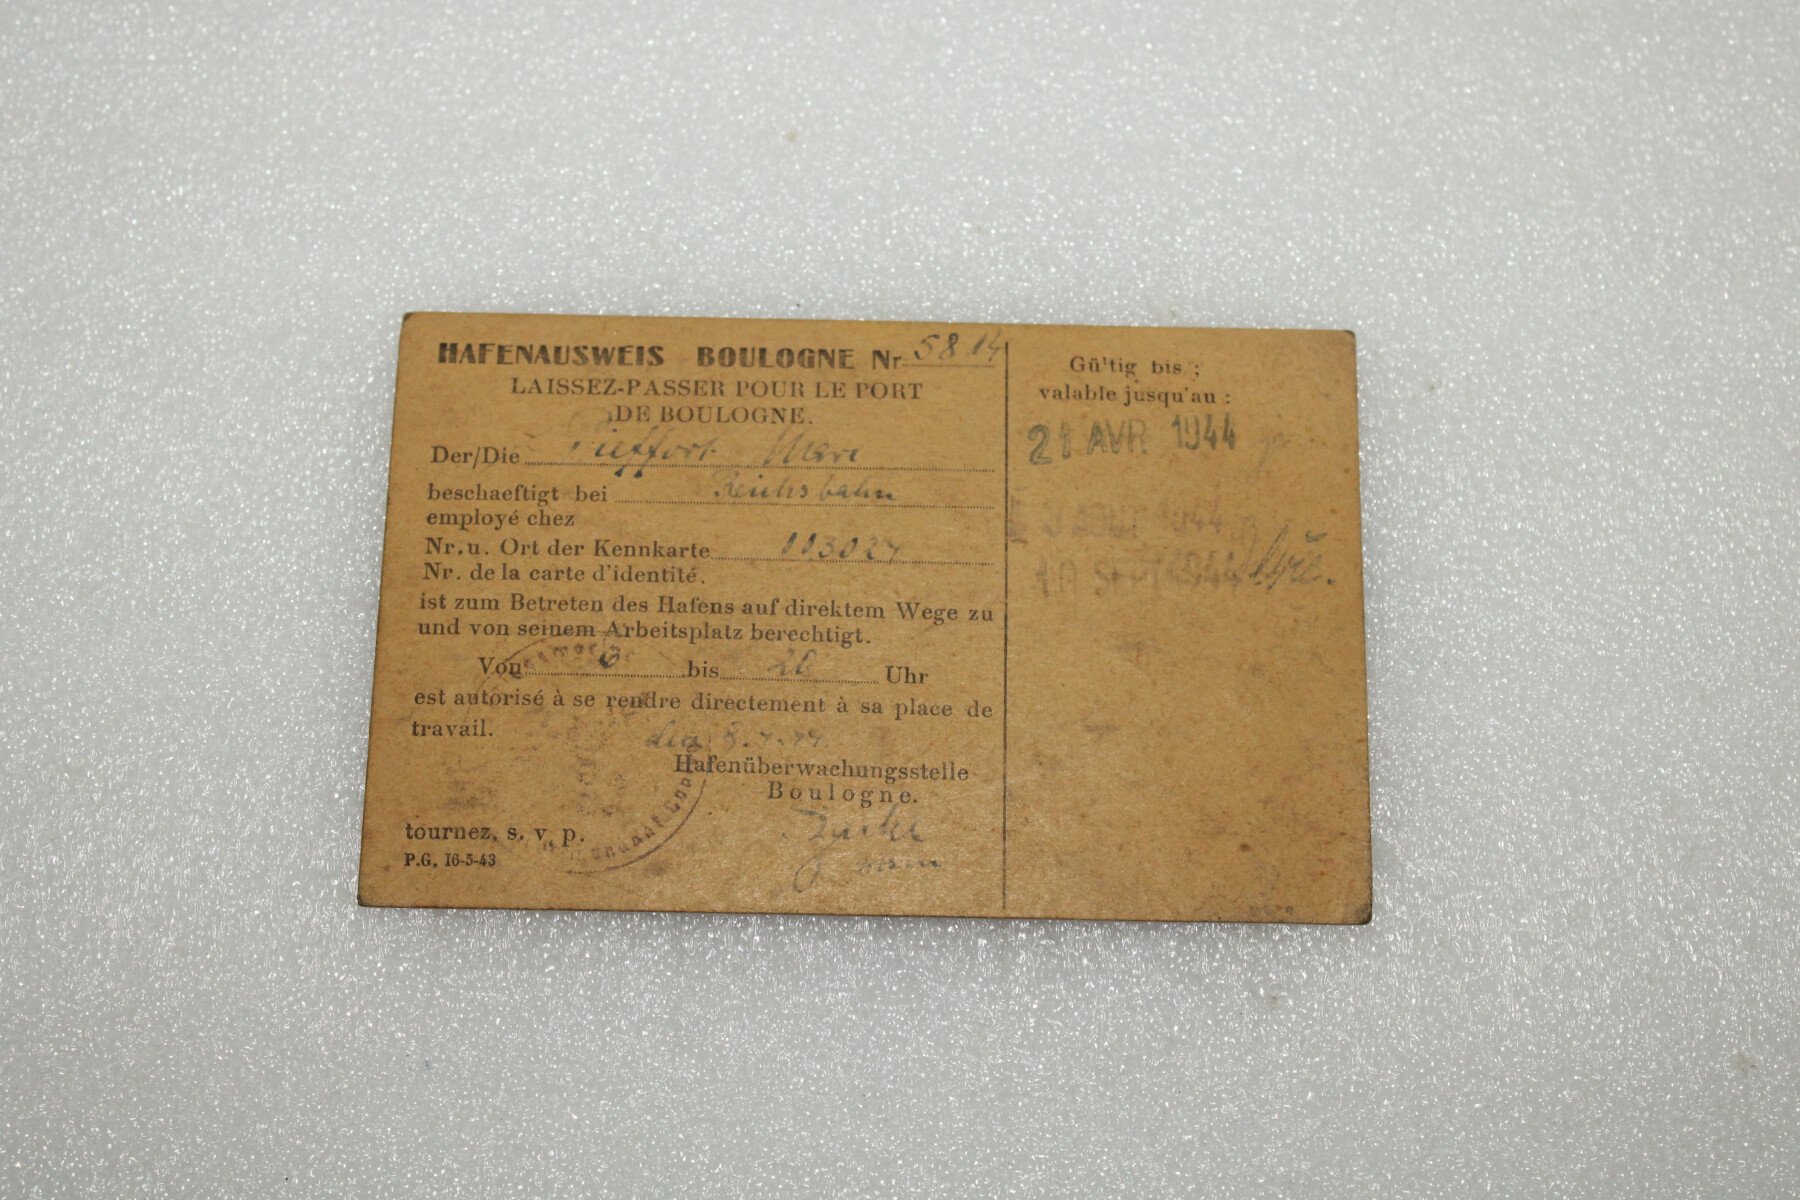 HAFENAUSWEIS BOULOGNE Nr 5814
LAISSEZ-PASSER POUR LE PORT
DE BOULOGNE.
Der/Die
beschaeftigt bei Reichsbahn
employé chez
Nr.u. Ort der Kennkarte 113024
Nr. de la carte d'identité.
ist zum Betreten des Hafens auf direktem Wege zu
und von seinem Arbeitsplatz berechtigt.
Von 6 bis 20 Uhr
est autorisé à se rendre directement à sa place de
travail.
den
Hafenüberwachungsstelle
Boulogne.
tournez, s. v. p.
P.G. 16-5-43
Gültig bis :
valable jusqu'au :
21 AVR 1944
1944
1944